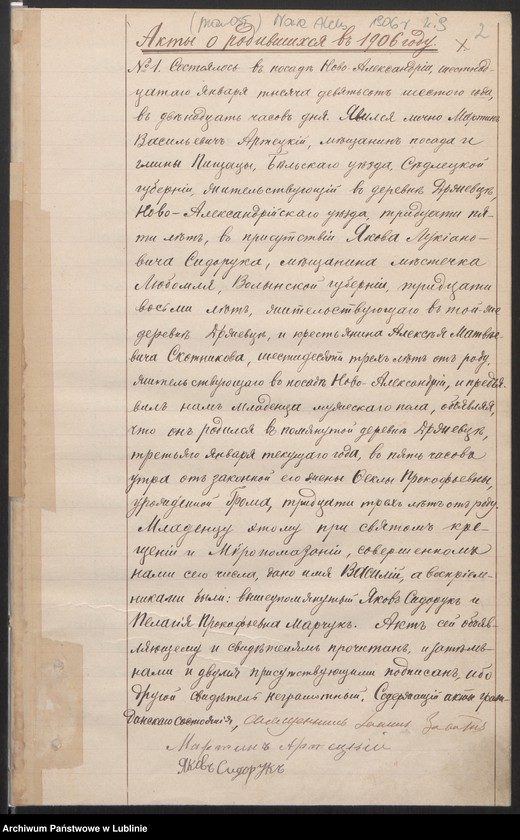 (prawosł) Nowa Aleks. 1906 r. U.S
2
Акты о родившихся въ 1906 году.
№1. Состоялось въ посадѣ Ново-Александріи, шестнад-
цатаго Января тысяча девятьсотъ шестого года,
въ двѣнадцать часовъ дня. Явился лично Мартинъ
Васильевичъ Артецкій, мѣщанинъ посада и
гмины Пищацы, Бѣльскаго уѣзда, Сѣдлецкой
губерніи, жительствующій въ деревнѣ
Ново-Александрійскаго уѣзда, тридцати пя-
ти лѣтъ, въ присутствіи Якова Лукіано-
вича Сидорука, мѣщанина мѣстечка
Любомля, Волынской губерніи, тридцати
восьми лѣтъ, жительствующаго въ той-же
деревнѣ, и крестьянина Алексѣя Матвѣе-
вича Скотникова, шестидесяти трехъ лѣтъ отъ роду,
жительствующаго въ посадѣ Ново-Александріи, и предъя-
вилъ намъ младенца мужескаго пола, объявляя,
что онъ родился въ помянутой деревнѣ
третьяго Января текущаго года, въ пять часовъ
утра отъ законной его жены Ѳеклы Прокофьевны,
урожденной Грома, тридцати трехъ лѣтъ отъ роду.
Младенцу этому при святомъ кре-
щеніи и Мѵропомазаніи, совершенномъ
нами сего числа, дано имя Василій, а воспріем-
никами были: вышеупомянутый Яковъ Сидорукъ и
Пелагія Прокофьевна Марчукъ. Актъ сей объяв-
ляющему и свидѣтелямъ прочтенъ, и затѣмъ
нами и двумя присутствующими подписанъ, ибо
другой свидѣтель неграмотный. Содержащій акты граж-
данскаго состоянія, Священникъ
Мартинъ Артецкій
Яковъ Сидорукъ
Archiwum Państwowe w Lublinie